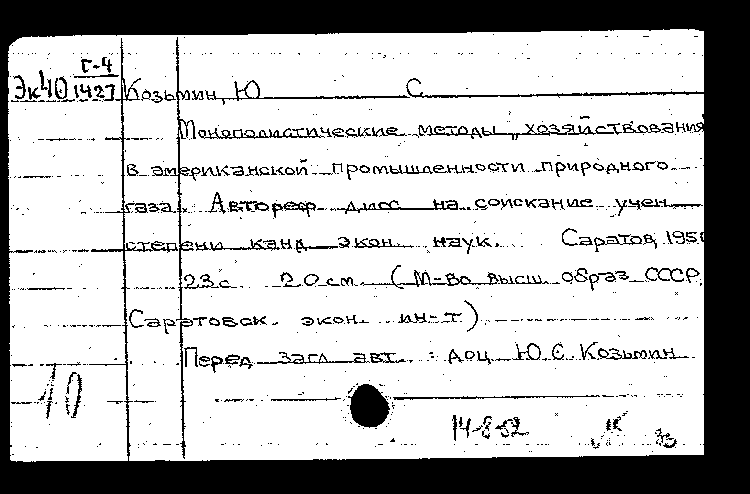 Г-4
Эк40 1427 Козьмин, Ю С.
Монополистические методы „хозяйствования
в американской промышленности природного
газа. Автореф дисс на соискание учен
степени канд экон наук. Саратов, 195
23 с 20 см (М-во высш. образ СССР.
Саратовск. экон. ин-т)
Перед загл авт. : доц Ю.С. Козьмин
10
14-8-52